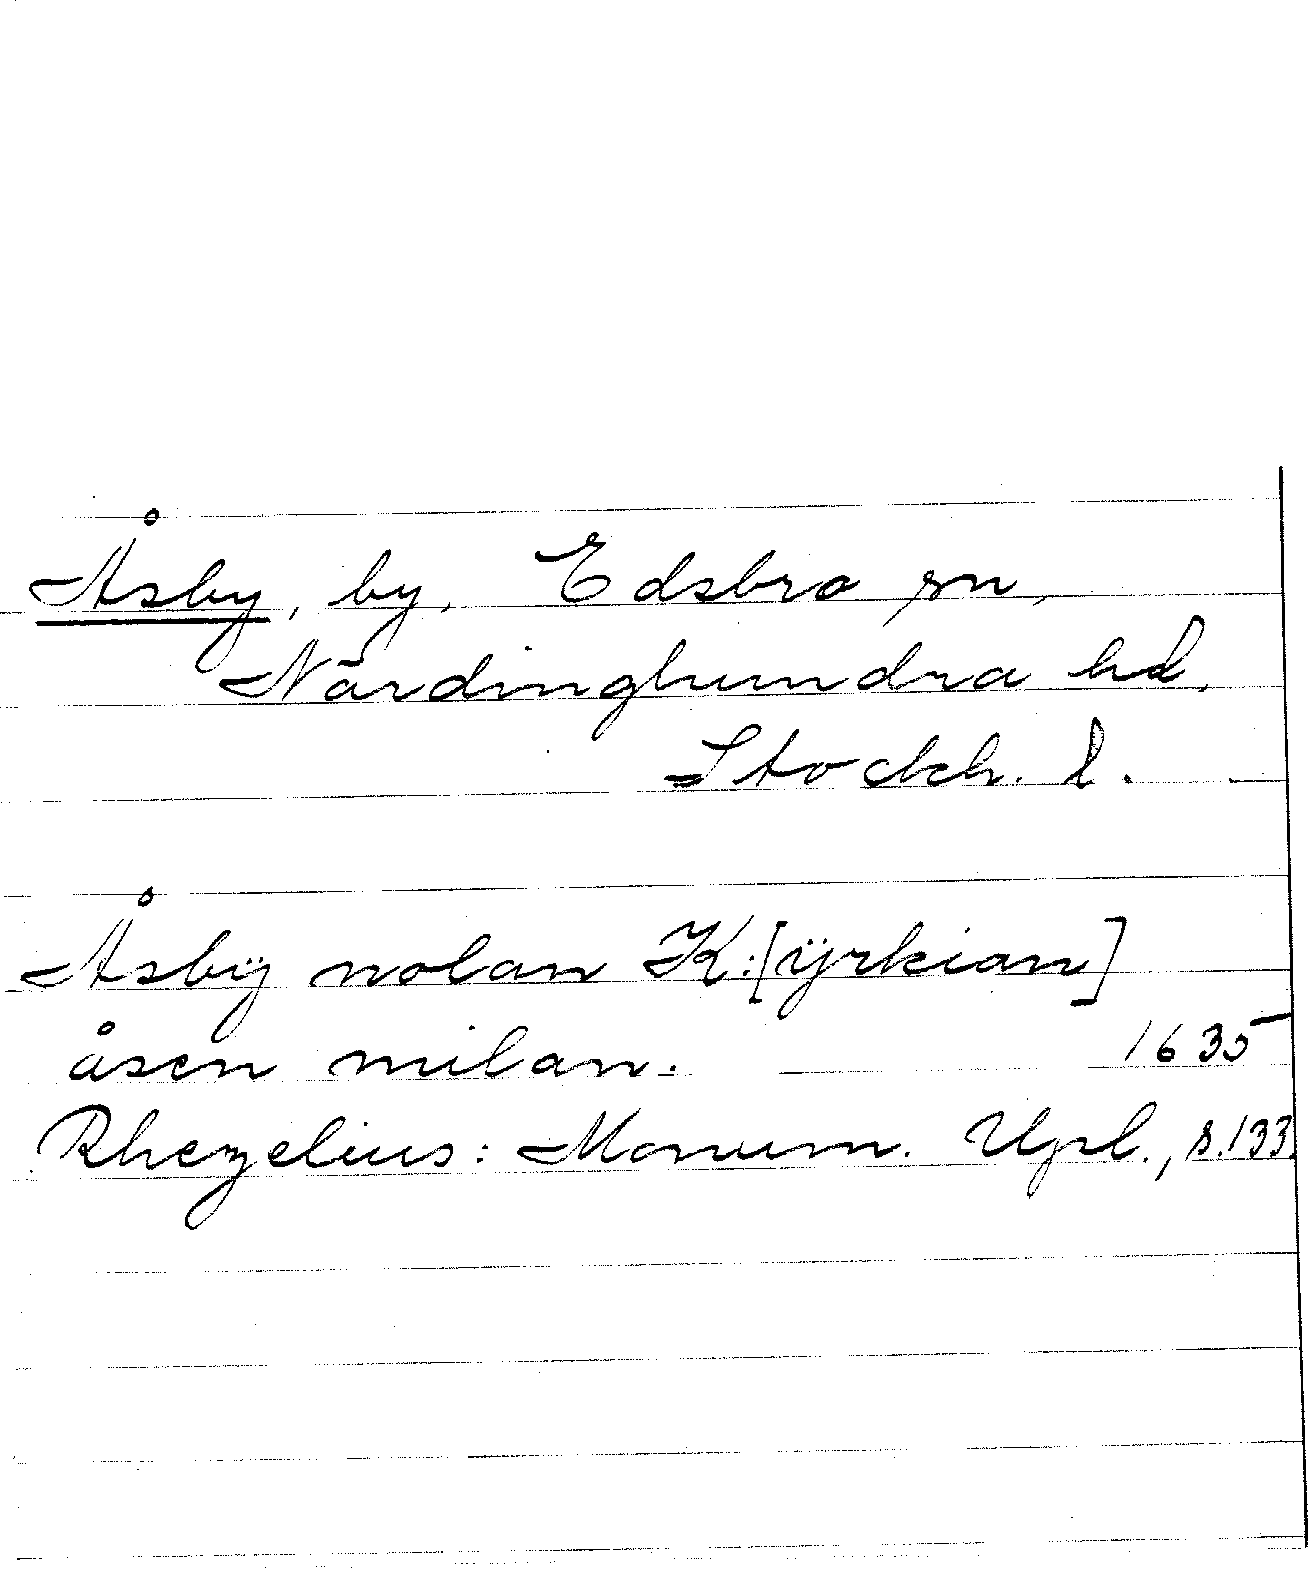 Åsby, by, Edsbro sn,
Närdinghundra hd,
Stockh. l.
Åsbÿ nolan K:[ÿrkian]
åsen milan. 1635
Rhezelius: Monum. Upl., s. 133.